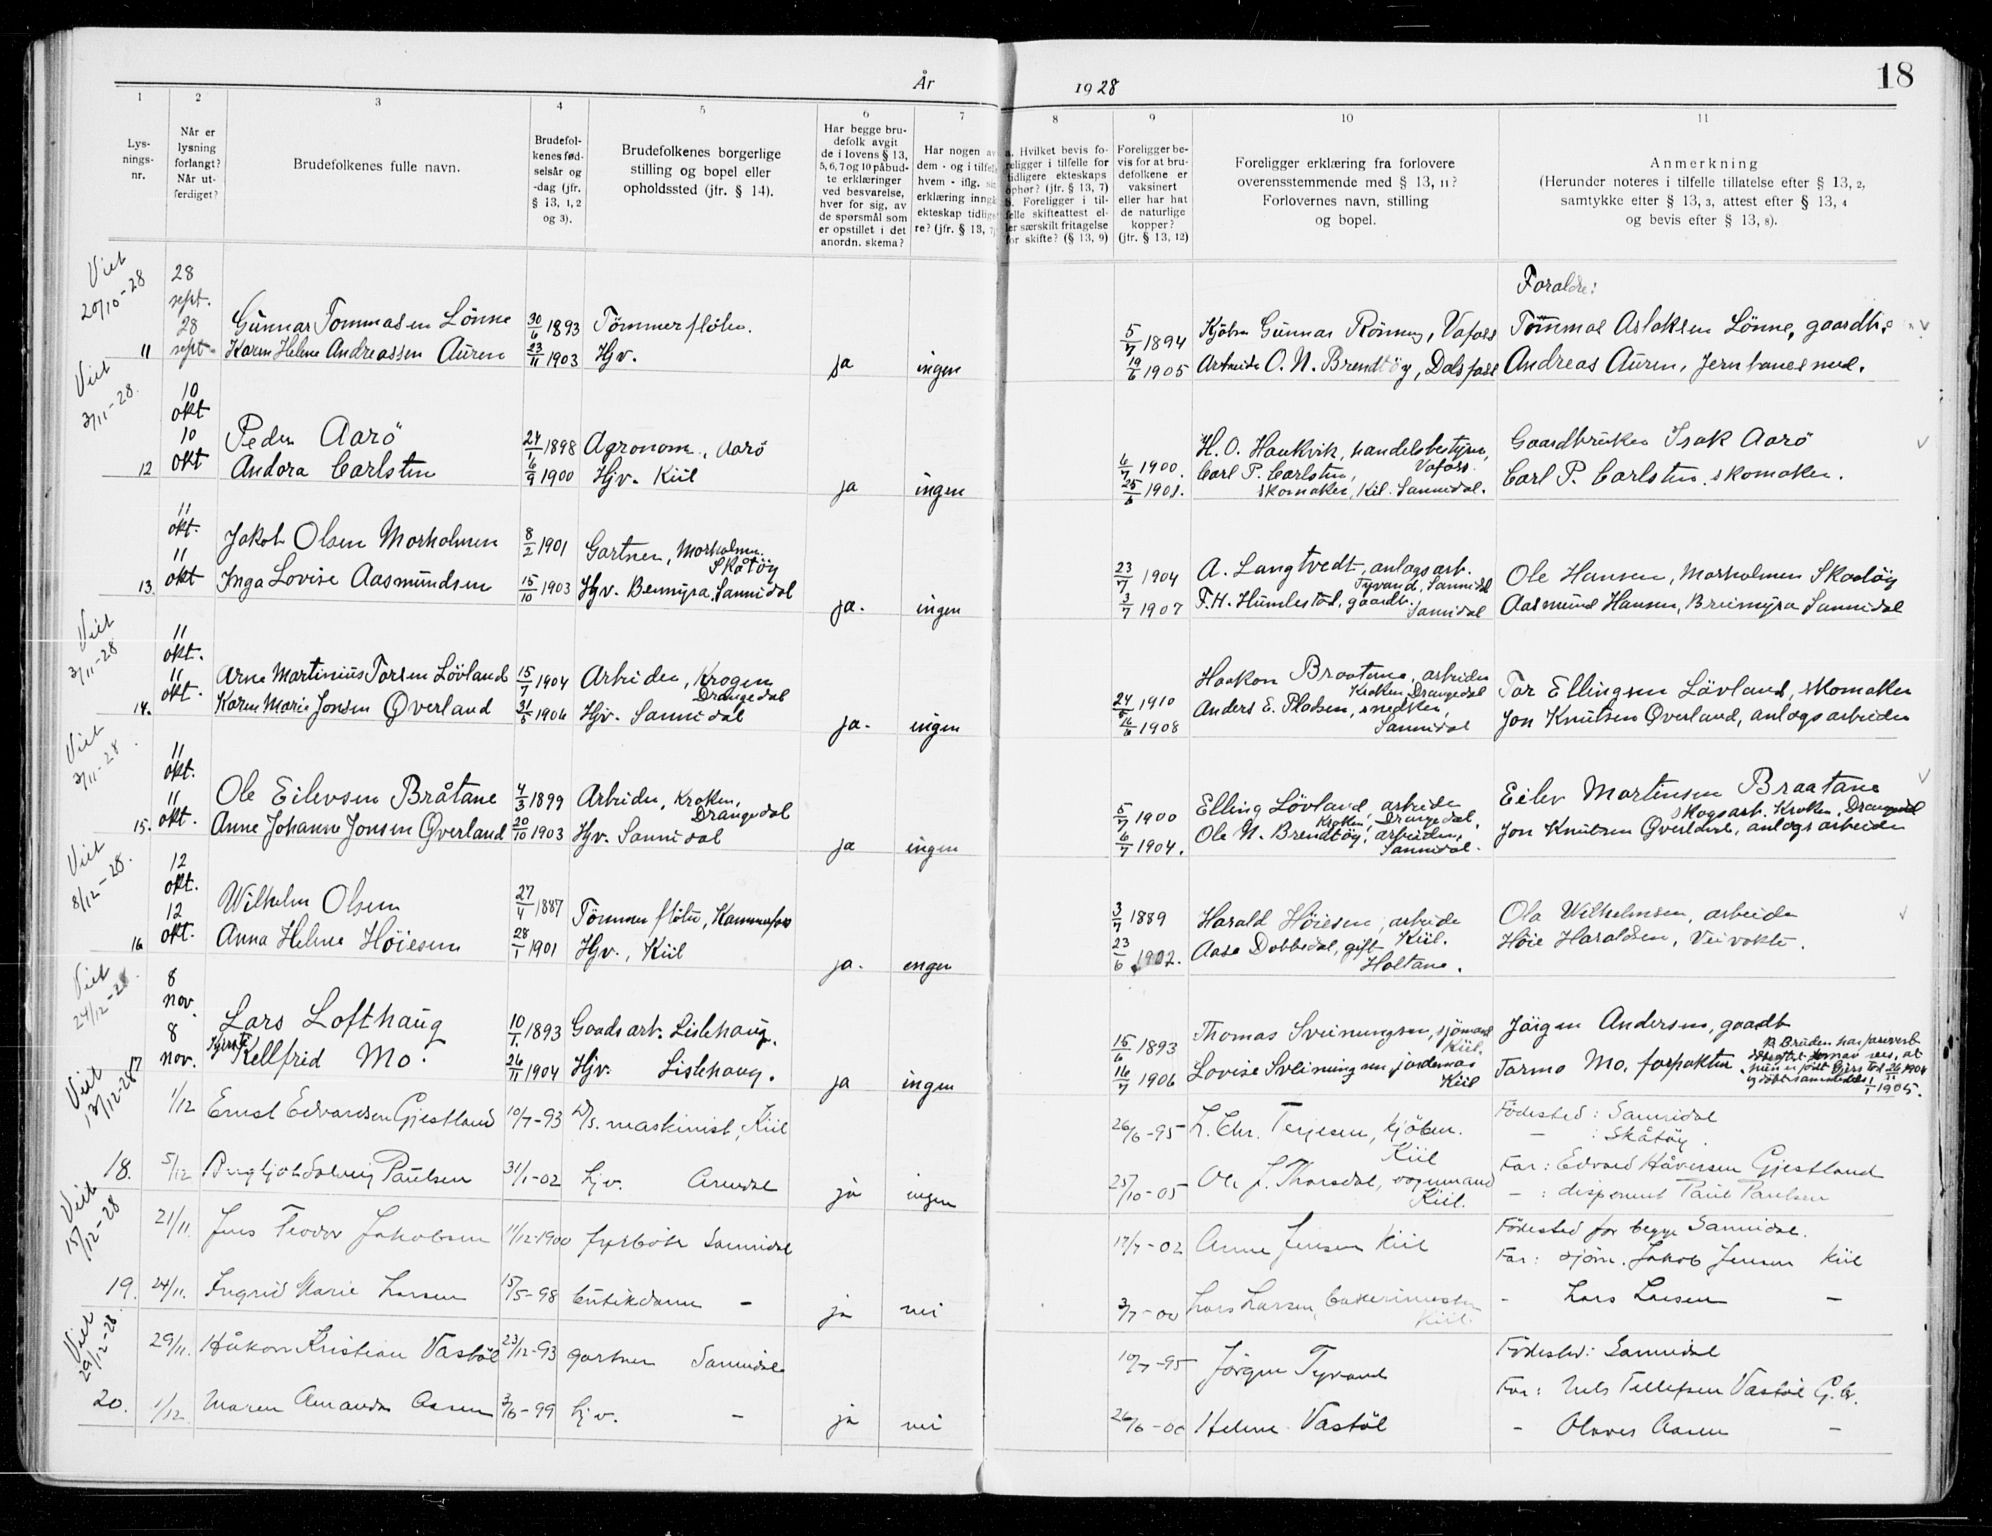 År 1928
18
1
2
3
4
5
6
7
8
9
10
11
Lys-
nings-
nr.
Når er
lysning
forlangt?
Når ut-
ferdiget?
Brudefolkenes fulle navn.
Brudefol-
kenes fød-
selsår og
-dag (jfr.
§ 13, 1, 2
og 3).
Brudefolkenes borgerlige
stilling og bopel eller
opholdssted (jfr. § 14).
Har begge bru-
defolk avgit
de i lovens § 13,
5, 6, 7 og 10 påbud-
te erklæringer
ved besvarelse,
hver for sig, av
de spørsmål som
er opstillet i det
anordn. skema?
Har nogen av
dem - og i tilfelle
hvem - iflg.
erklæring inngå
ekteskap tidlige-
re? (jfr. § 13, 7)
a. Hvilket bevis fo-
religger i tilfelle for
tidligere ekteskaps
ophør? (jfr. § 13, 7)
b. Foreligger i til-
felle skifteattest el-
ler særskilt fritagelse
for skifte? (§ 13, 9)
Foreligger be-
vis for at bru-
defolkene er
vaksinert
eller har hat
de naturlige
kopper?
(jfr. § 13, 12)
Foreligger erklæring fra forlovere
overensstemmende med § 13, 11?
Forlovernes navn, stilling
og bopel.
Anmerkning
(Herunder noteres i tilfelle tillatelse efter § 13, 2,
samtykke efter § 13, 3, attest efter § 13, 4
og bevis efter § 13, 8).
Foraldre:
Viet 20/10-28
28 sept. Gunnar Tommasen Lønne 30/6 1893 Tømmerfløter. 5/7 1894 Kjøbm Gunnar Rønning, Vafoss Tommas Aslaksen Lønne, gaardbr.
11 28 sept. Karen Helene Andreassen Auren 23/11 1903 Hjv. ja ingen 19/6 1905 Arbeider O. N. Brendtøy, Dalsfoss Andreas Auren, Jernbanemed.
Viet 3/11-28.
10 okt Peder Aarö 24/1 1898 Agronom, Aarö 6/7 1900. H. O. Haukvik, handelsbestyrer, Vafoss. Gaardbruker Isak Aarö
12 10 okt Andora Carlsten 6/9 1900 Hjv. Kiil ja ingen 25/6 1901. Carl P. Carlsten, skomaker, Kil. Sannidal. Carl P. Carlsten, skomaker.
11 okt. Jakob Olsen Morholmen 8/2 1901 Gartner, Morholmen. Skåtöy 23/7 1904 A. Langtvedt, anlegsarb. Tyvand, Sannidal Ole Hansen, Morholmen Skaatöy
13. 11 okt Inga Lovise Aasmundsen 15/10 1903 Hjv. Bermyra, Sannidal ja. ingen 3/7 1907 T. H. Humlestad, gaardb. Sannidal Aasmund Hansen, Breimyra Sannidal
Viet 3/11-28
11 okt. Arne Martinius Torsen Lövland 15/7 1904 Arbeider, Krogen Drangedal 24/5 1910 Haakon Braatane, arbeider Kroken, Drangedal Tor Ellingsen Lövland, skomaker
14. 11 okt. Karen Marie Jonsen Øverland 31/5 1906 Hjv. Sannidal ja. ingen 16/6 1908 Anders E. Pladsen, snedker, Sannidal Jon Knutsen Øverland, anlegsarbeider
Viet 3/11-28.
11 okt. Ole Eilevsen Bråtane 4/3 1899 Arbeider, Kroken, Drangedal 5/7 1900 Elling Lövland, arbeider Kroken, Drangedal. Eilev Martinsen Braatane skogsarb. Kroken, Drangedal
15. 11 okt. Anne Johanne Jonsen Øverland 20/10 1903 Hjv. Sannidal ja ingen 6/7 1904. Ole N. Brendtöy, arbeider, Sannidal. Jon Knutsen Øverland, anlegsarbeider
Viet 8/12-28.
12 okt. Wilhelm Olsen 27/4 1887 Tømmerfløter, Kammerfoss 3/7 1889 Harald Høiesen, arbeider Kiil. Ola Wilhelmsen, arbeider
16 12 okt. Anna Helene Høiesen 28/1 1901 Hjv., Kiil ja. ingen 23/6 1902. Aase Dobbedal, gift Holtane. Høie Haraldsen, Veivokter.
Viet 24/12-28
8 nov. Lars Lofthaug 10/1 1893 Gaardsarb. Lislehaug. 15/6 1893 Thomas Sveinungsen, sjömand Kiil. Jörgen Andersen, gaardb
17 8 nov. Kjersti Kellfrid Mo. 26/11 1904 Hjv. Lislehaug. ja ingen 16/7 1906 Lovise Sveinungsen jordemor Kiil Tarmo Mo, forpakter. B. Bruden har hun er født 26/11 1904 1/1 1905.
Viet 13/12-28
1/12 Ernst Edvardsen Gjestland 10/7-93 D/s. maskinist, Kiil 26/6-95 L. Chr. Terjesen, kjöbm. Kiil Födested: Sannidal
— : Skåtöy.
18. 5/12 Bergljot Solveig Paulsen 31/1-02 hjv. Arendal ja ingen 25/10-05 Ole J. Thorsdal, vognmand Kiil. Far: Edvard Håversen Gjestland
— : disponent Paul Paulsen
Viet 15/12-28
21/11. Jens Teodor Jakobsen 11/12-1900 fyrböter Sannidal 17/7-02 Anne Jensen Kiil Födested for begge Sannidal.
Far: sjöm. Jakob Jensen Kiil
19. 24/11. Ingrid Marie Larsen 15/5-98 butikdame — ja nei 3/7-00 Lars Larsen, bakermester Kiil. - Lars Larsen —
Viet 29/12-28.
29/11. Håkon Kristian Vastöl 23/12-93 gartner Sannidal 10/7-95 Jörgen Tyvand Födested: Sannidal
Far: Nils Tellefsen Vastöl G.br.
20. 1/12. Maren Amanda Aasen 3/6-99 hjv. — ja nei 26/6-00 Helene Vastöl - Olaves Aasen —